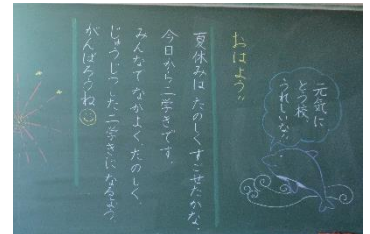 おはよう!!
元気に
とう校
うれしいな。
夏休みは たのしくすごせたかな。
今日から二学きです。
みんなでなかよく、たのしく、
じゅうじつした二学きになるよう、
がんばろうね